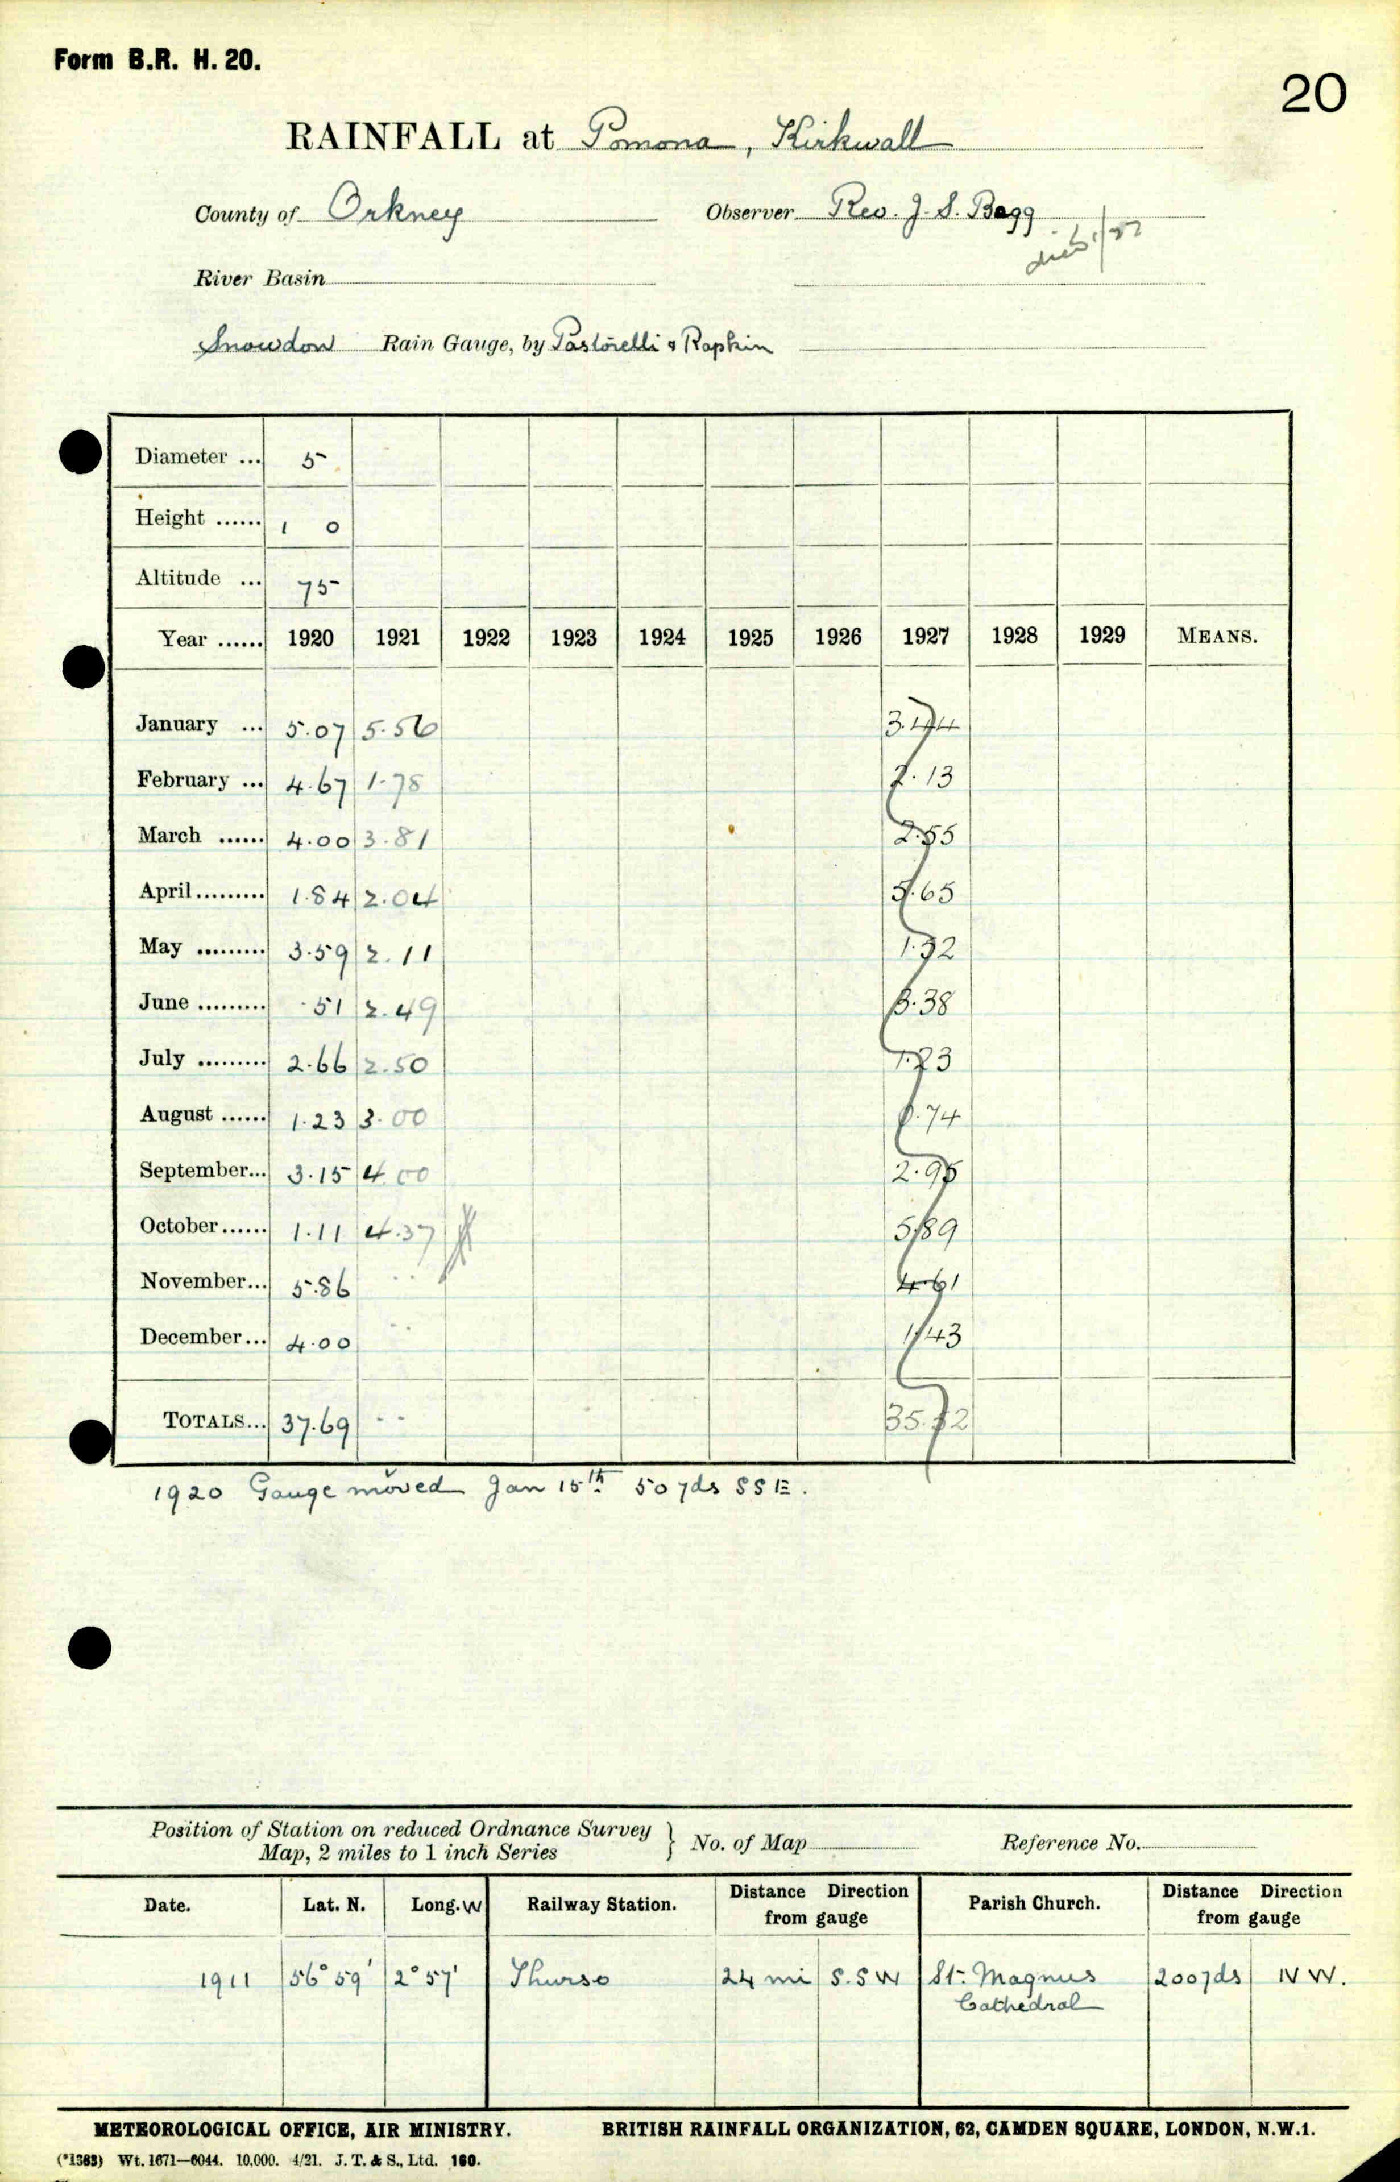 Form B.R. H. 20.
20
RAINFALL at Pomona, Kirkwall
County of Orkney Observer Rev. J. S. Begg
died
River Basin
Snowdon Rain Gauge, by Pastorelli & Rapkin
Diameter ... 5
Height ...... 1 0
Altitude ... 75
Year ...... 1920 1921 1922 1923 1924 1925 1926 1927 1928 1929 MEANS.
January ... 5.07 5.56 3.44
February ... 4.67 1.78 2.13
March ...... 4.00 3.81 2.55
April ......... 1.84 2.04 5.65
May ......... 3.59 2.11 1.52
June ......... .51 2.49 3.38
July ......... 2.66 2.50 1.23
August ...... 1.23 3.00 0.74
September... 3.15 4.00 2.95
October...... 1.11 4.37 5.89
November... 5.86 .. 4.61
December... 4.00 .. 1.43
TOTALS... 37.69 .. 35.52
1920 Gauge moved Jan 15th. 50 yds SSE.
Position of Station on reduced Ordnance Survey
Map, 2 miles to 1 inch Series } No. of Map Reference No.
Date. Lat. N. Long. W Railway Station. Distance Direction from gauge Parish Church. Distance Direction from gauge
1911 56° 59' 2° 57' Thurso 24 mi S.SW St. Magnus 200yds NW.
Cathedral
METEOROLOGICAL OFFICE, AIR MINISTRY. BRITISH RAINFALL ORGANIZATION, 62, CAMDEN SQUARE, LONDON, N.W.1.
(*1383) Wt. 1671—6044. 10,000. 4/21. J. T. & S., Ltd. 160.